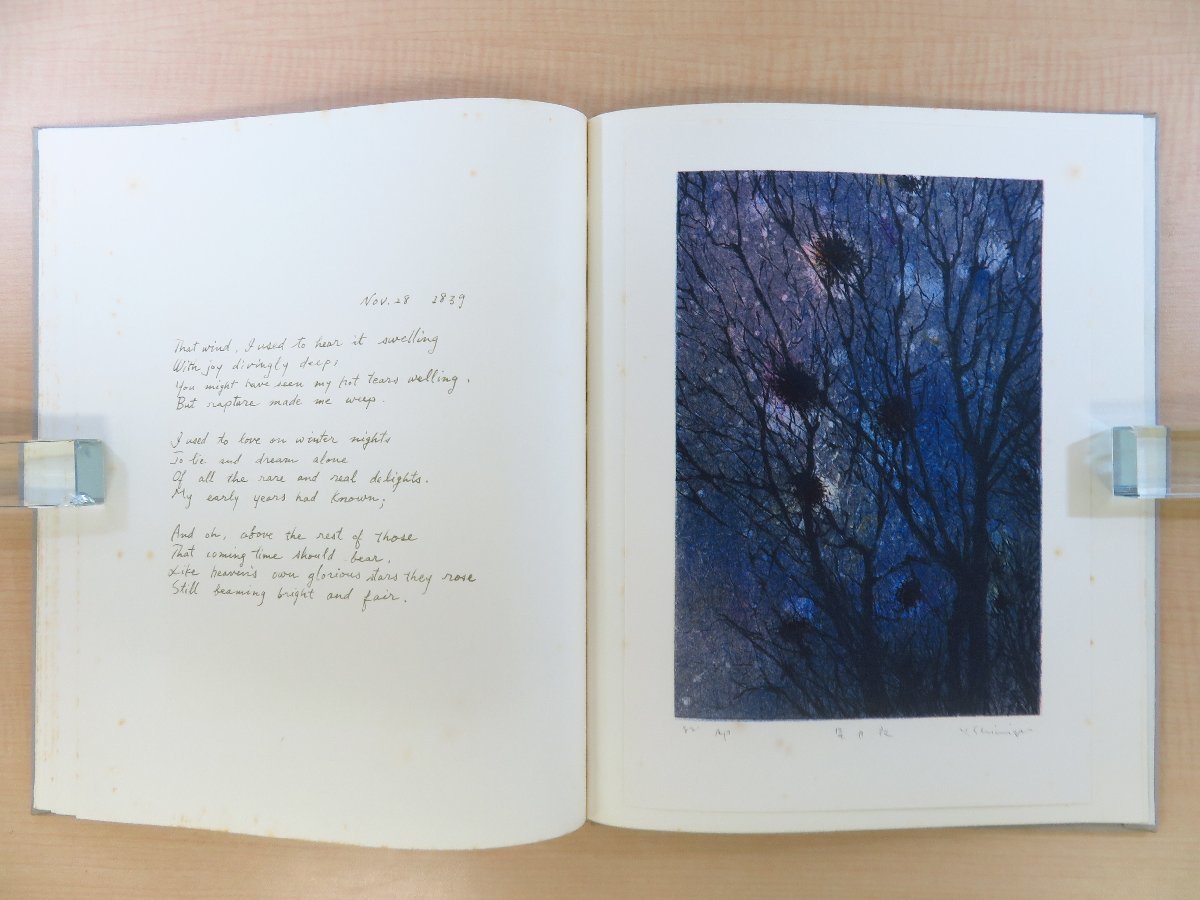 Nov. 28 1839
That wind, I used to hear it swelling
With joy divingly deep;
You might have seen my hot tears welling,
But rapture made me weep.
I used to love on winter nights
To lie and dream alone
Of all the rare and real delights.
My early years had known;
And oh, above the rest of those
That coming time should bear,
Like heaven's own glorious stars they rose
Still beaming bright and fair.
AP